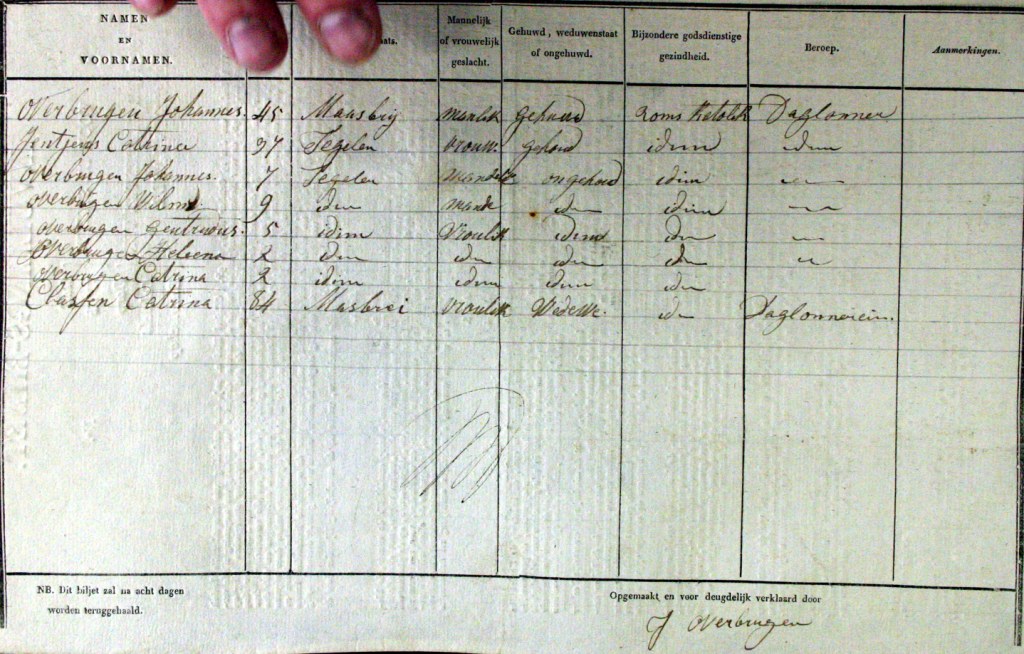 NAMEN EN VOORNAMEN. Mannelijk of vrouwelijk geslacht. Gehuwd, weduwenstaat of ongehuwd. Bijzondere godsdienstige gezindheid. Beroep. Aanmerkingen.
Overbrugen Johannes. 45 Maasbrij manlik gehoud Roms Katolik Daglonner
Jentjens Catrina 37 Tegelen vrouw. gehoud idem idem
Overbrugen Johannes. 7 Tegelen ongehoud idim
overbrugen 9 idem idem idim
overbrugen Gentrudus. 5 idim Vroulik idim idem
Overbrugen Helena 2 idem idem idem idem
overbrugen Catrina 2 idim idem idem idem
Classen Catrina 84 Masbrei vroulik Wedewe. idem Daglonnerin.
NB. Dit biljet zal na acht dagen
worden teruggehaald.
Opgemaakt en voor deugdelijk verklaard door
J overbrugen